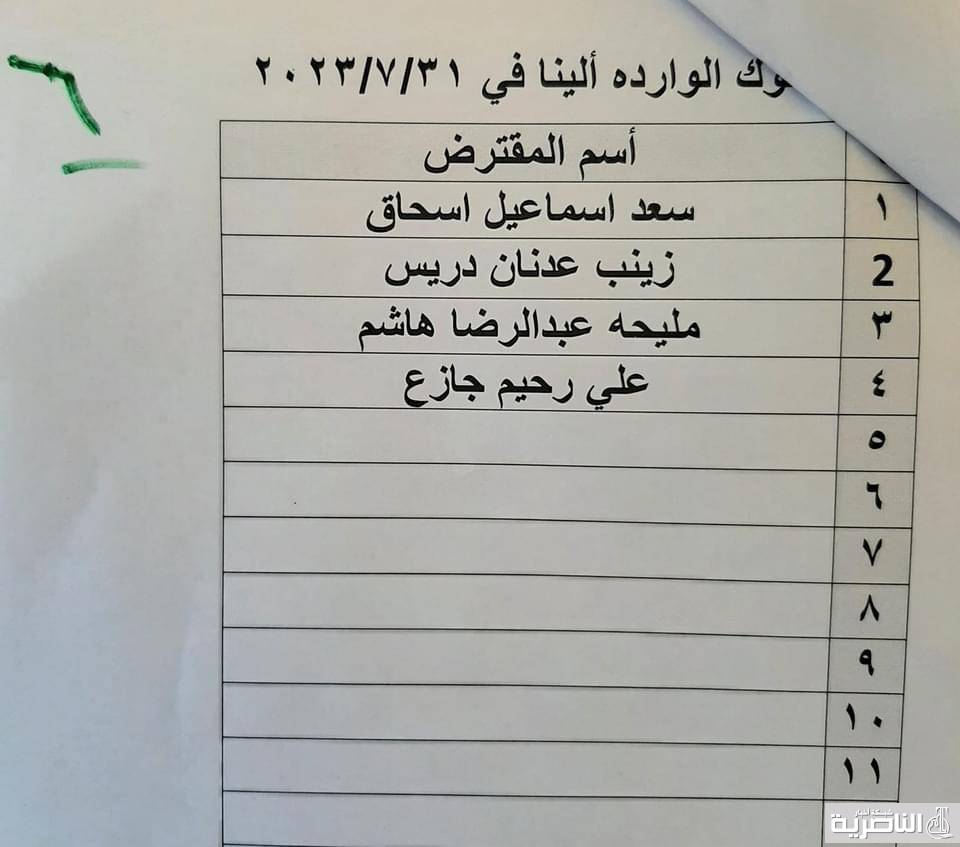 ٦
الوارده ألينا في ٢٠٢٣/٧/٣١
أسم المقترض
١ سعد اسماعيل اسحاق
2 زينب عدنان دريس
٣ مليحه عبدالرضا هاشم
٤ علي رحيم جازع
٥
٦
٧
٨
٩
١٠
١١
شبكة أخبار
الناصرية